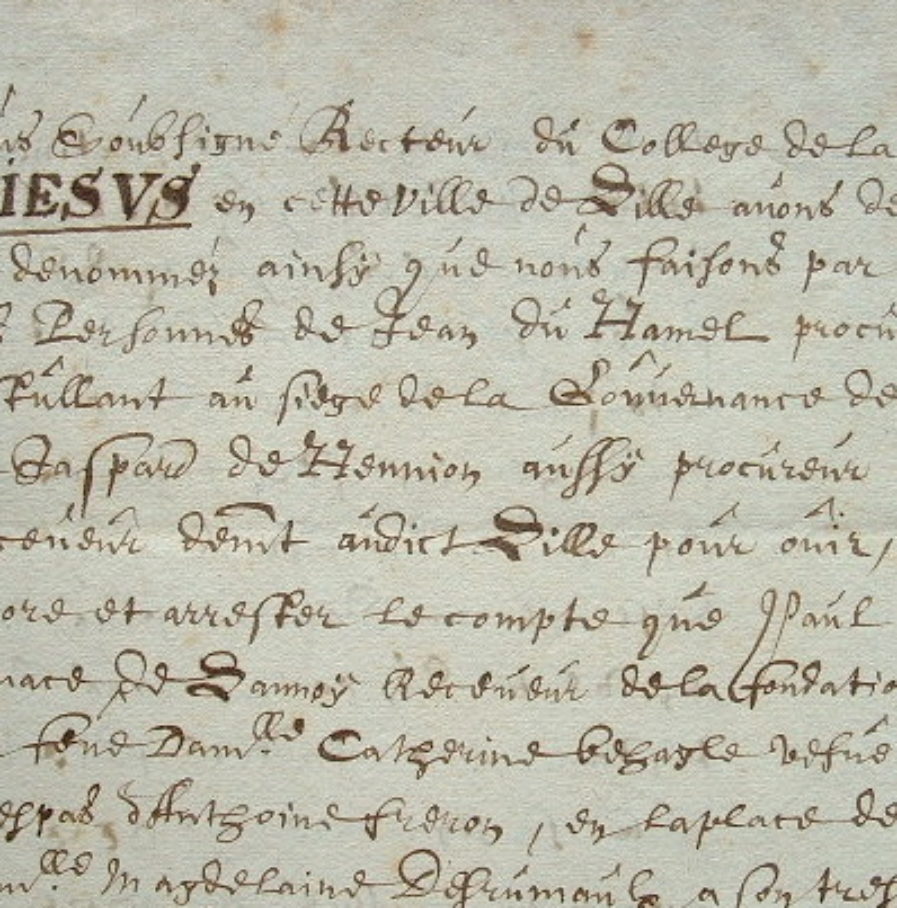 us Soubsigne Recteur du College de la
IESVS en cette ville de Lille auons de
denommez ainsy que nous faisons par
Personnes de Jean du Hamel procu
stullant au siege de la Gouuernance de
Gaspard de Hennion aussy procureur
ceueur demt audict Lille pour ouir,
ore et arrester le compte que Paul
nace de Lannoy Receueur de la fondatio
feue Damlle Catherine behagle vefue
espas d'Anthoine freron, en la place de
mlle Magdelaine Desrumaulx a son tres